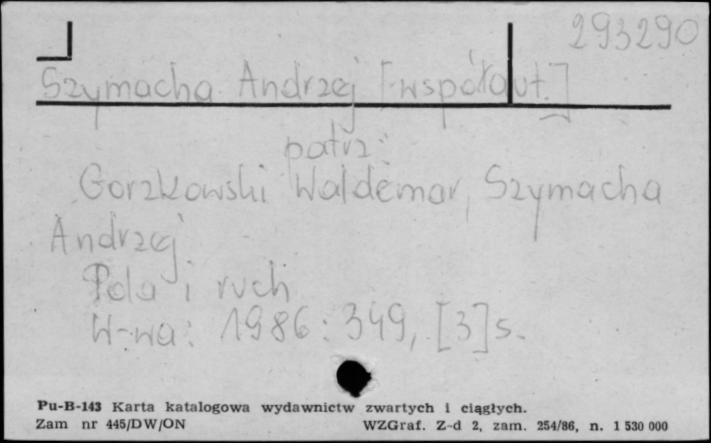 293290
Szymacha Andrzej [współaut.]
patrz:
Gorzkowski Waldemar, Szymacha
Andrzej
Pola i ruch
W-wa: 1986: 349, [3] s.
Pu-B-143 Karta katalogowa wydawnictw zwartych i ciągłych.
Zam nr 445/DW/ON WZGraf. Z-d 2, zam. 254/86, n. 1 530 000